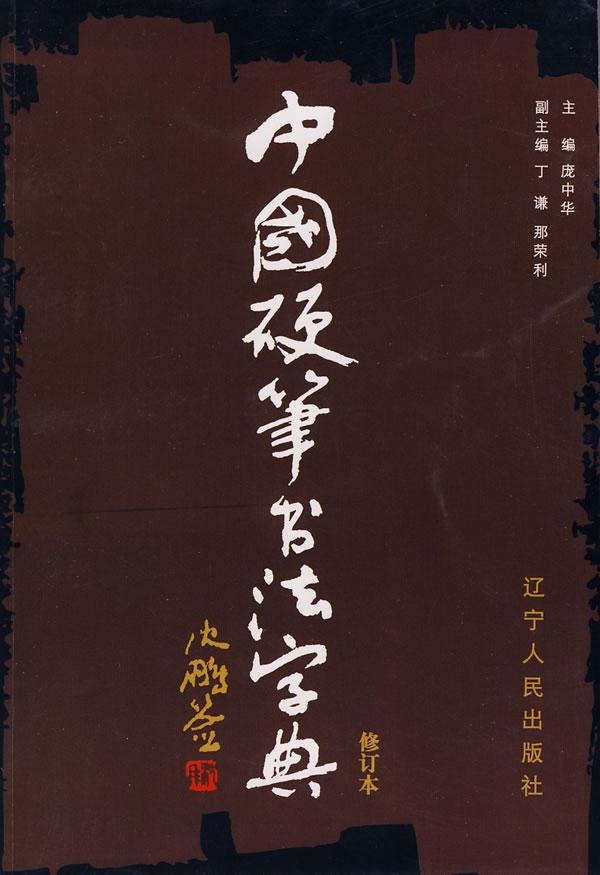 主 编 庞中华
副主编 丁 谦 那荣利
中國硬筆书法字典
修订本
沈鹏签
辽宁人民出版社